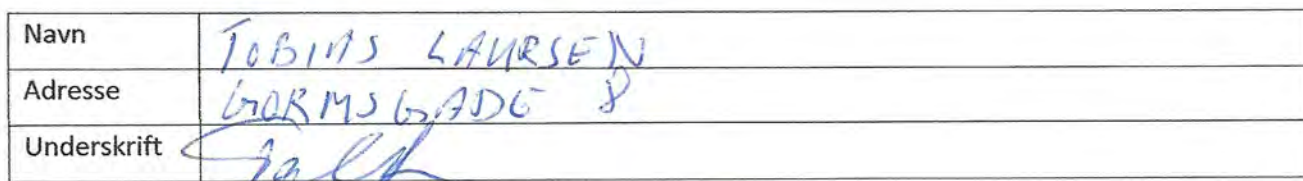 Navn TOBIAS LAURSEN
Adresse GORMSGADE 8
Underskrift